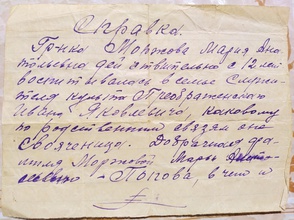 Справка.
Гр-нка Моржова Мария Ана
тольевна действительно с 12 лет
воспитывалась в семье служи-
теля культа Преображенского
Ивана Яковлевича, каковому
по родственным связям она
своячeница. Добрачная фа-
милия Моржовой Марии
– Попова, в чем и